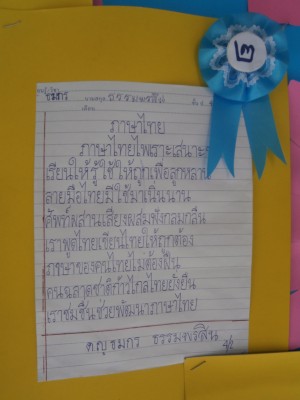 ๒
ภาษาไทย
ภาษาไทยไพเราะเสนาะ
เรียนให้รู้ใช้ให้ถูกเพื่อลูกหลาน
ลายมือไทยมีใช้มาเนิ่นนาน
ศัพท์ผสานเสียงผสมฟังกลมกลืน
เราพูดไทยเขียนไทยให้ถูกต้อง
ภาษาของคนไทยไม่ต้องฝืน
คนฉลาดชาติก้าวไกลไทยยั่งยืน
เราชมชื่นช่วยพัฒนาภาษาไทย
ด.ญ ชมกร